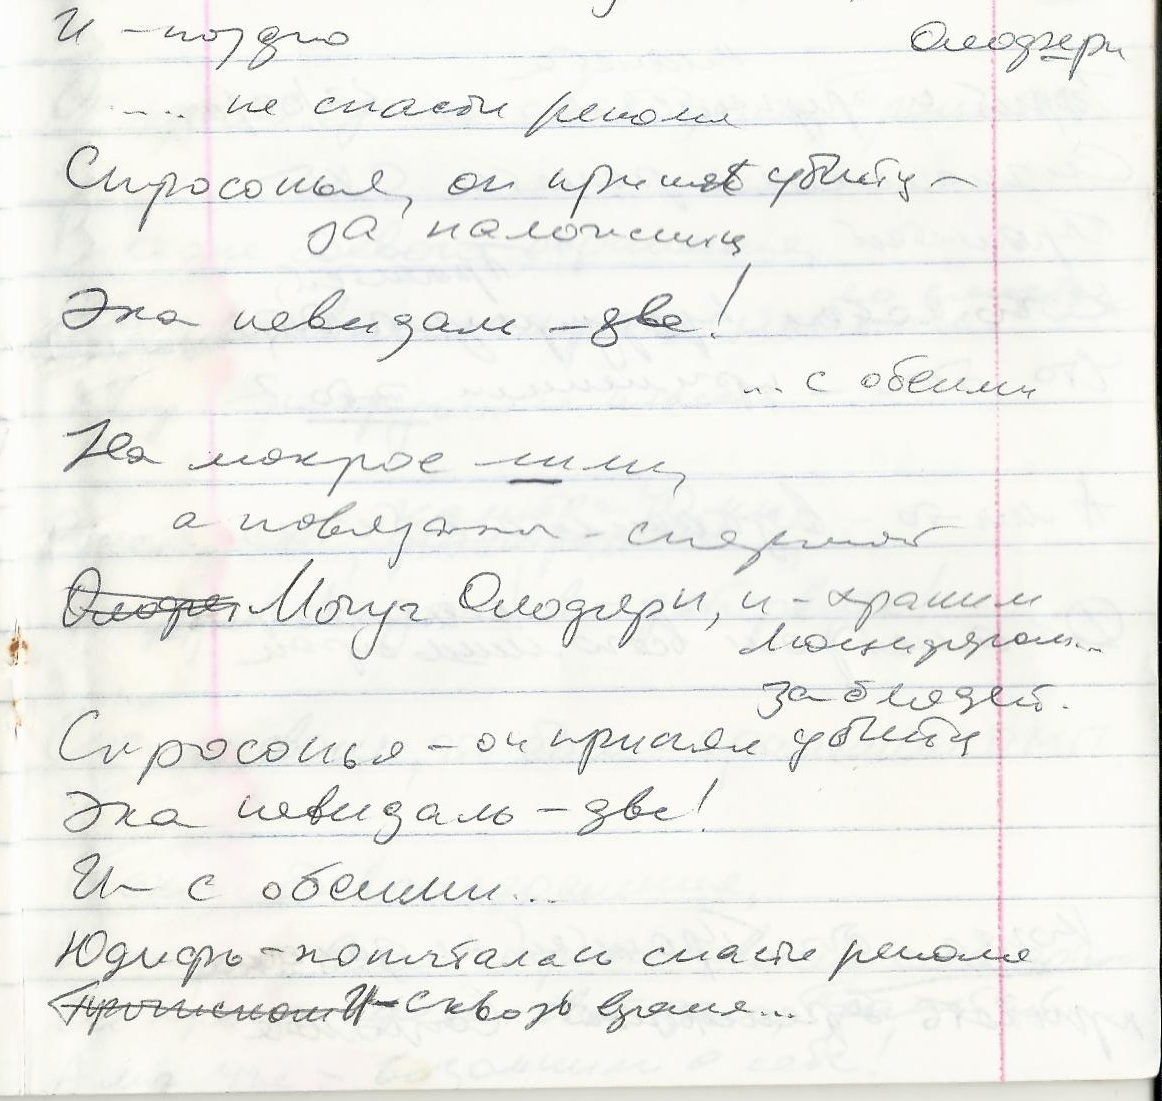 И – поздно
Олоферн
.... не спасти реноме
Спросонья, он принял убийц –
за наложниц
Эка невидаль – две!
... с обеими
На мокрое шли,
а повязаны - спермой
Могуч Олоферн, и – храним
...
за блядей.
Спросонья – он принял убийц
Эка невидаль – две!
И – с обеими...
Юдифь – попыталась спасти реноме
И – сквозь время...